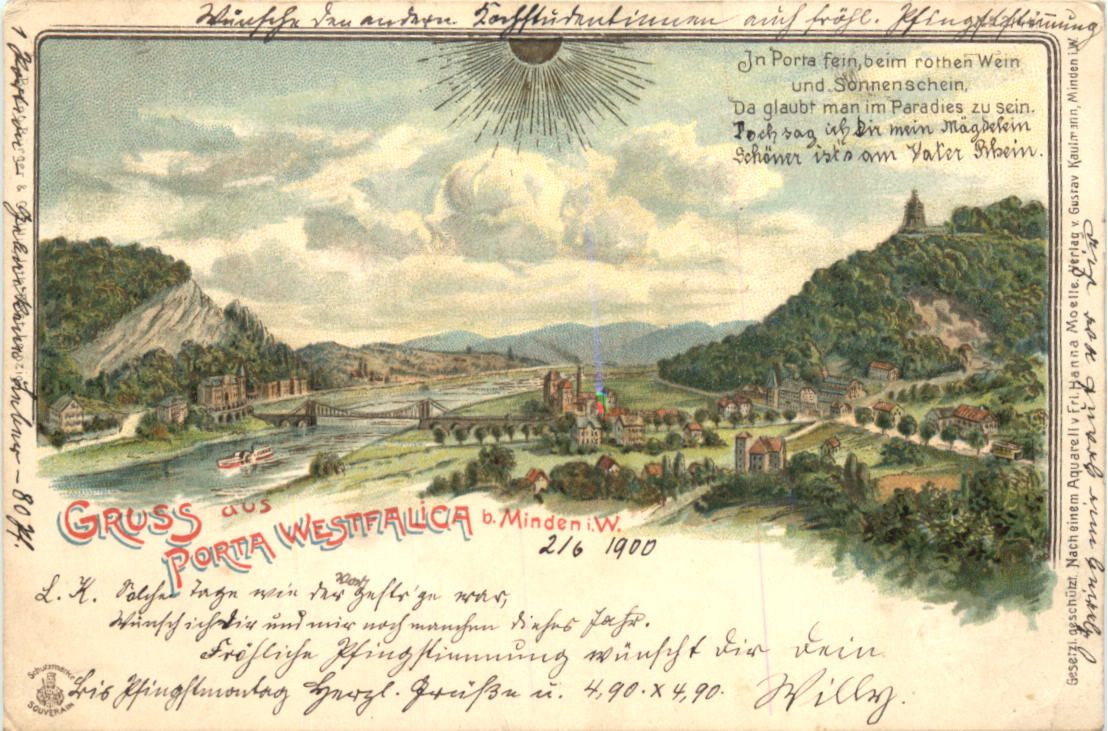 Wünsche den andern Kochstudentinnen auch fröhl. Pfingststimmung
In Porta fein, beim rothen Wein
und Sonnenschein,
Da glaubt man im Paradies zu sein.
Doch sag ich Dir mein Mägdelein
Schöner ist's am Vater Rhein.
GRUSS aus
PORTA WESTFALICA b. Minden i. W.
2/6 1900
L. K. Solche Tage wie der Vorgestr'ge war,
Wünsch ich Dir und mir noch manchen dieses Jahr.
Fröhliche Pfingststimmung wünscht Dir Dein
Bis Pfingstmontag Herzl. Grüße u. 4,90 x 4,90. Willy.
Schutzmarke
SOUVERAIN
Gesetzl. geschützt. Nach einem Aquarell v. Frl. Hanna Moelle. Verlag v. Gustav Kaufmann, Minden i. W.